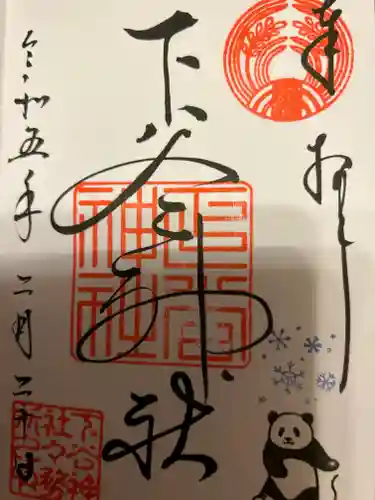 奉拝
下谷神社
下谷神社
令和五年 二月 二十日
下谷神
社々務
所之印